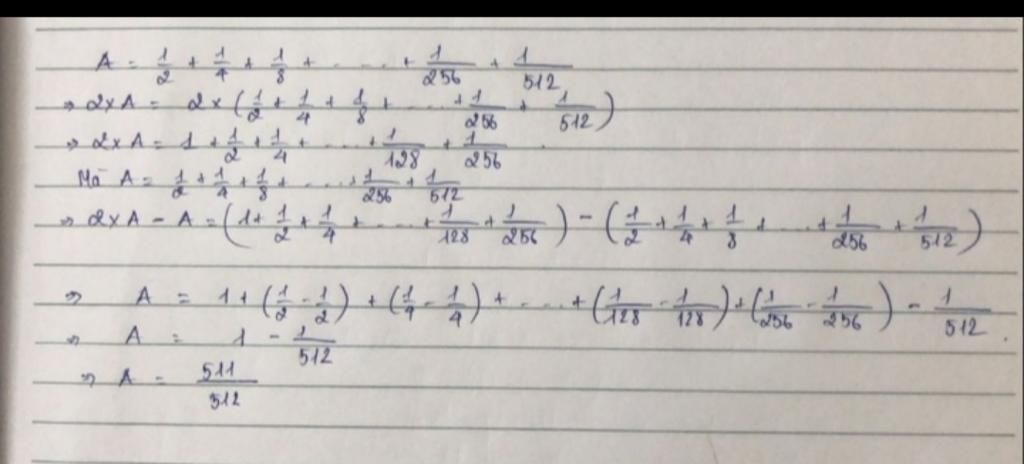 A = 1/2 + 1/4 + 1/8 + ..... + 1/256 + 1/512
⇒ 2×A = 2×(1/2 + 1/4 + 1/8 + .... + 1/256 + 1/512)
⇒ 2×A = 1 + 1/2 + 1/4 + .... + 1/128 + 1/256
Mà A = 1/2 + 1/4 + 1/8 + .... + 1/256 + 1/512
⇒ 2×A - A = (1 + 1/2 + 1/4 + .... + 1/128 + 1/256) - (1/2 + 1/4 + 1/8 + .... + 1/256 + 1/512)
⇒ A = 1 + (1/2 - 1/2) + (1/4 - 1/4) + .... + (1/128 - 1/128) + (1/256 - 1/256) - 1/512
⇒ A = 1 - 1/512
⇒ A = 511/512